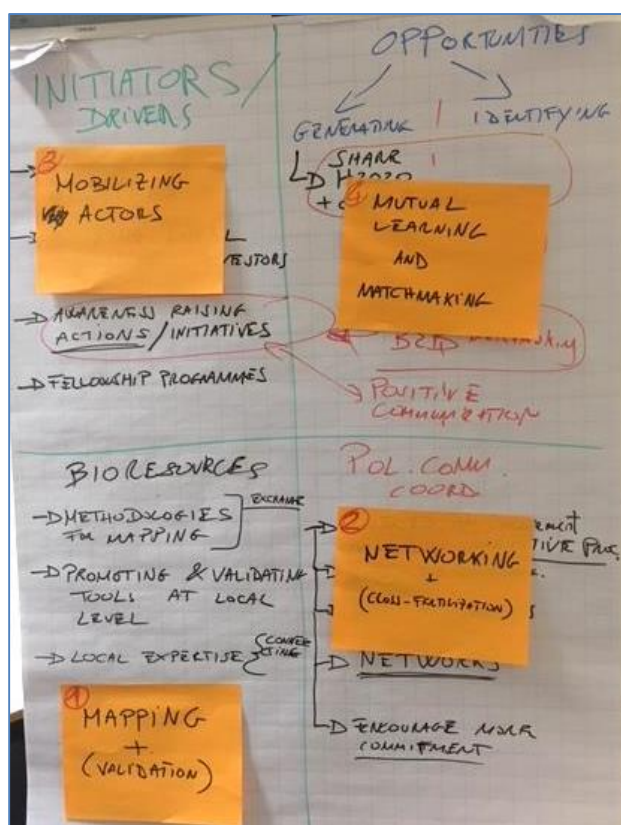 INITIATORS/
DRIVERS
3
MOBILIZING
ACTORS
ESTORS
→ AWARENESS RAISING
ACTIONS/INITIATIVES
→ FELLOWSHIP PROGRAMMES
OPPORTUNITIES
GENERATING | IDENTIFYING
SHARE
H2020
+
4
MUTUAL
LEARNING
AND
MATCHMAKING
POSITIVE
COMMUNICATION
BIORESOURCES
→ METHODOLOGIES
FOR MAPPING
EXCHANGE
→ PROMOTING & VALIDATING
TOOLS AT LOCAL
LEVEL
→ LOCAL EXPERTISE
1
MAPPING
+
(VALIDATION)
POL. COMM.
COORD
2
NETWORKING
+
(CROSS-FERTILIZATION)
→ NETWORKS
→ ENCOURAGE MORE
COMMITMENT